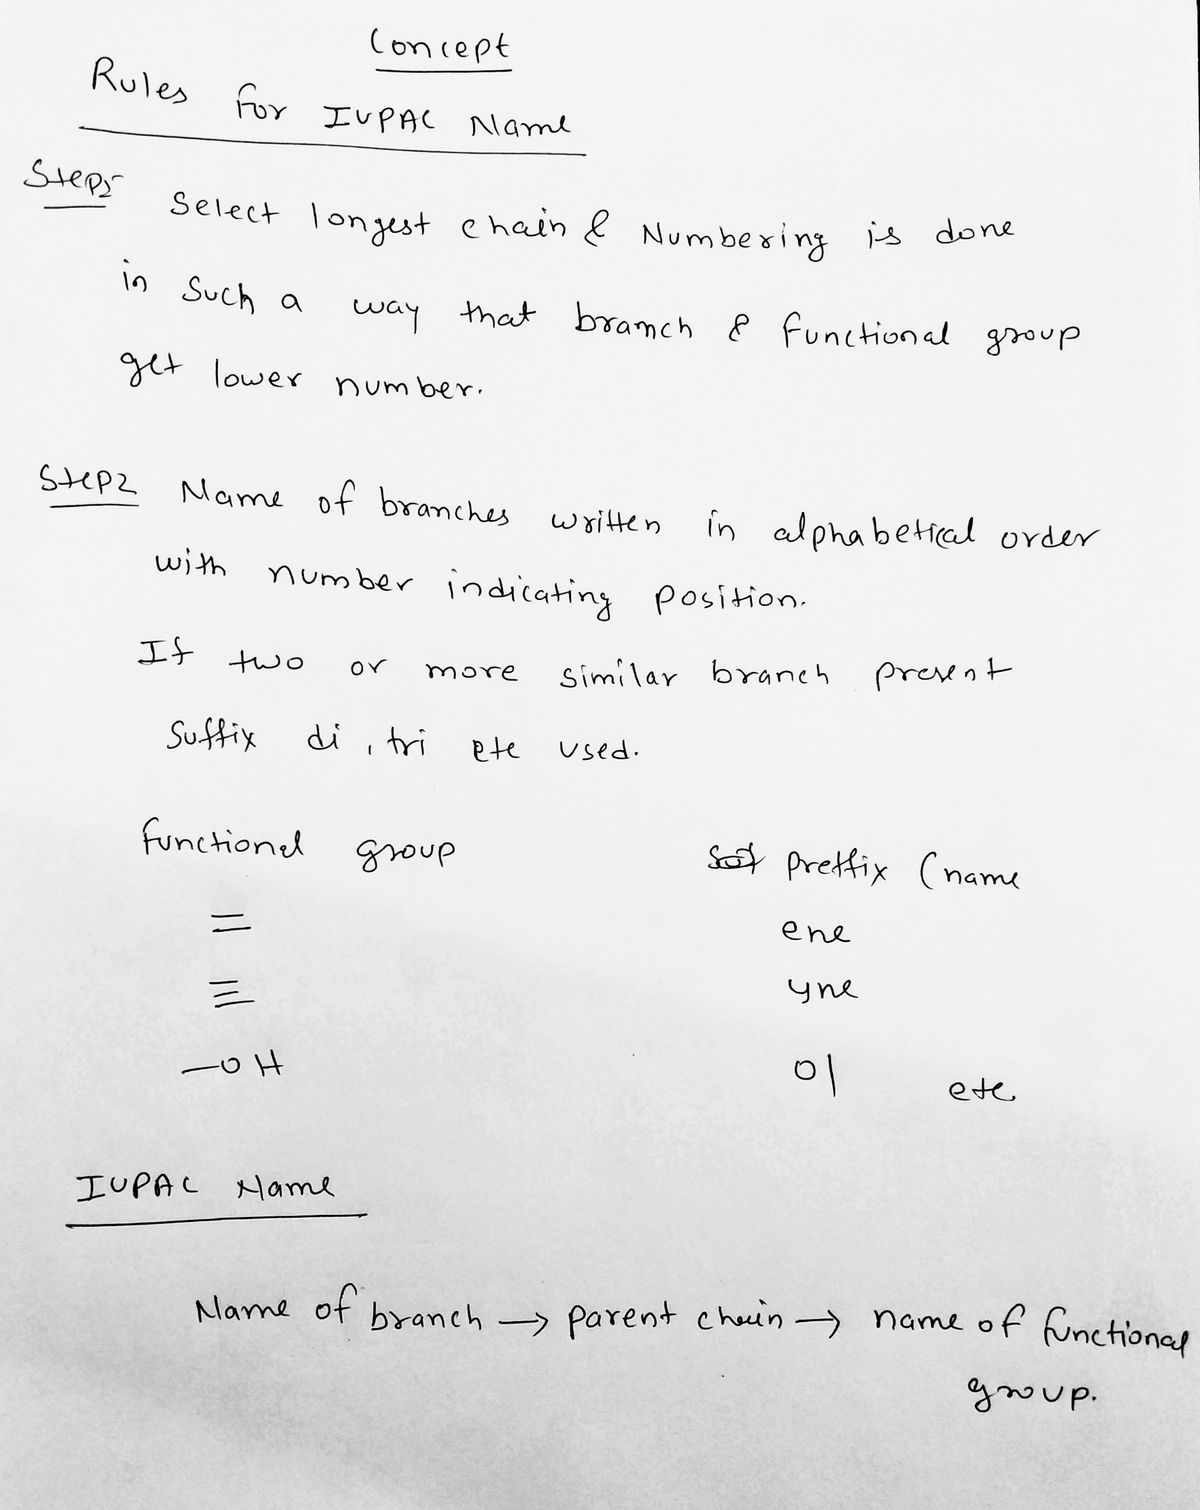 Concept
Rules for IUPAC Name
Step:-
Select longest chain & Numbering is done
in such a way that branch & functional group
get lower number.
Step2 Name of branches written in alphabetical order
with number indicating position.
If two or more similar branch present
Suffix di, tri etc used.
functional group prettix (name
= ene
≡ yne
—OH ol etc
IUPAC Name
Name of branch → parent chain → name of functional
group.